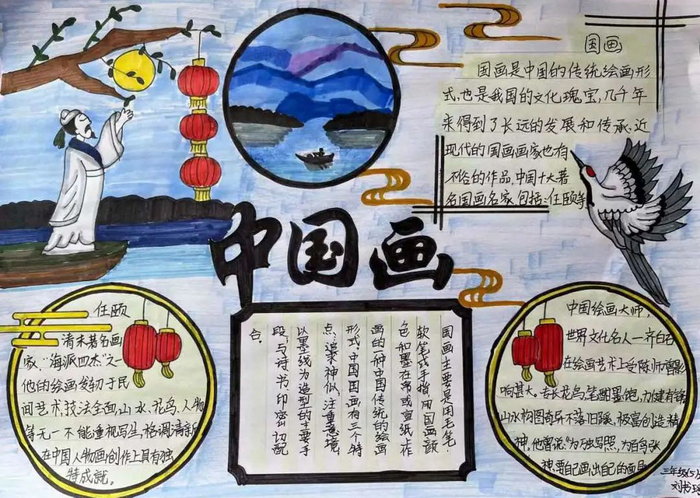 国画
国画是中国的传统绘画形
式,也是我国的文化瑰宝,几千年
来得到了长远的发展和传承,近
现代的国画画家也有
不俗的作品,中国十大著
名国画名家,包括:任颐等
中国画
任颐
清末著名画
家,"海派四杰"之一
他的绘画发轫于民
间艺术,技法全面,山水、花鸟、人物
等无一不能,重视写生,格调清新
在中国人物画创作上具有独
特成就。
国画主要是用毛笔.
软笔或手指,用国画颜
色和墨在帛或宣纸上作
画的一种中国传统的绘画
形式,中国国画有三个特
点,追求神似,注重意境
以墨线为造型的主要手
段,与诗、书、印密切就
合.
中国绘画大师,
世界文化名人一齐白石
在绘画艺术上受陈师曾影
响甚大,专长花鸟,笔酣墨饱,力健有锋
山水构图奇异不落旧蹊,极富创造精
神,他曾说"为万虫写照,为百鸟张
想要自己画出自己的面
三年级(5)
刘书